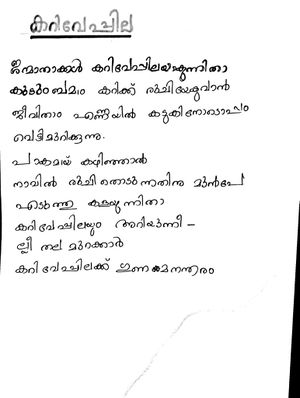 കറിവേപ്പില
ജന്മദാതാക്കൾ കറിവേപ്പിലയാകുന്നിതാ
കുടുംബമാം കറിക്ക് രുചിയേകുവാൻ
ജീവിതാം എണ്ണയിൽ കടുകിനോടൊപ്പം
വെട്ടിമുറിക്കുന്നു.
പാകമായ് കഴിഞ്ഞാൽ
നാവിൽ രുചി തൊടുന്നതിനു മുൻപേ
എടുത്തു കളയുന്നിതാ
കറിവേപ്പിലയും അറിയുന്നീ -
ല്ലീ തല മുറക്കാർ
കറിവേപ്പിലക്ക് ഗുണമേനന്തരം